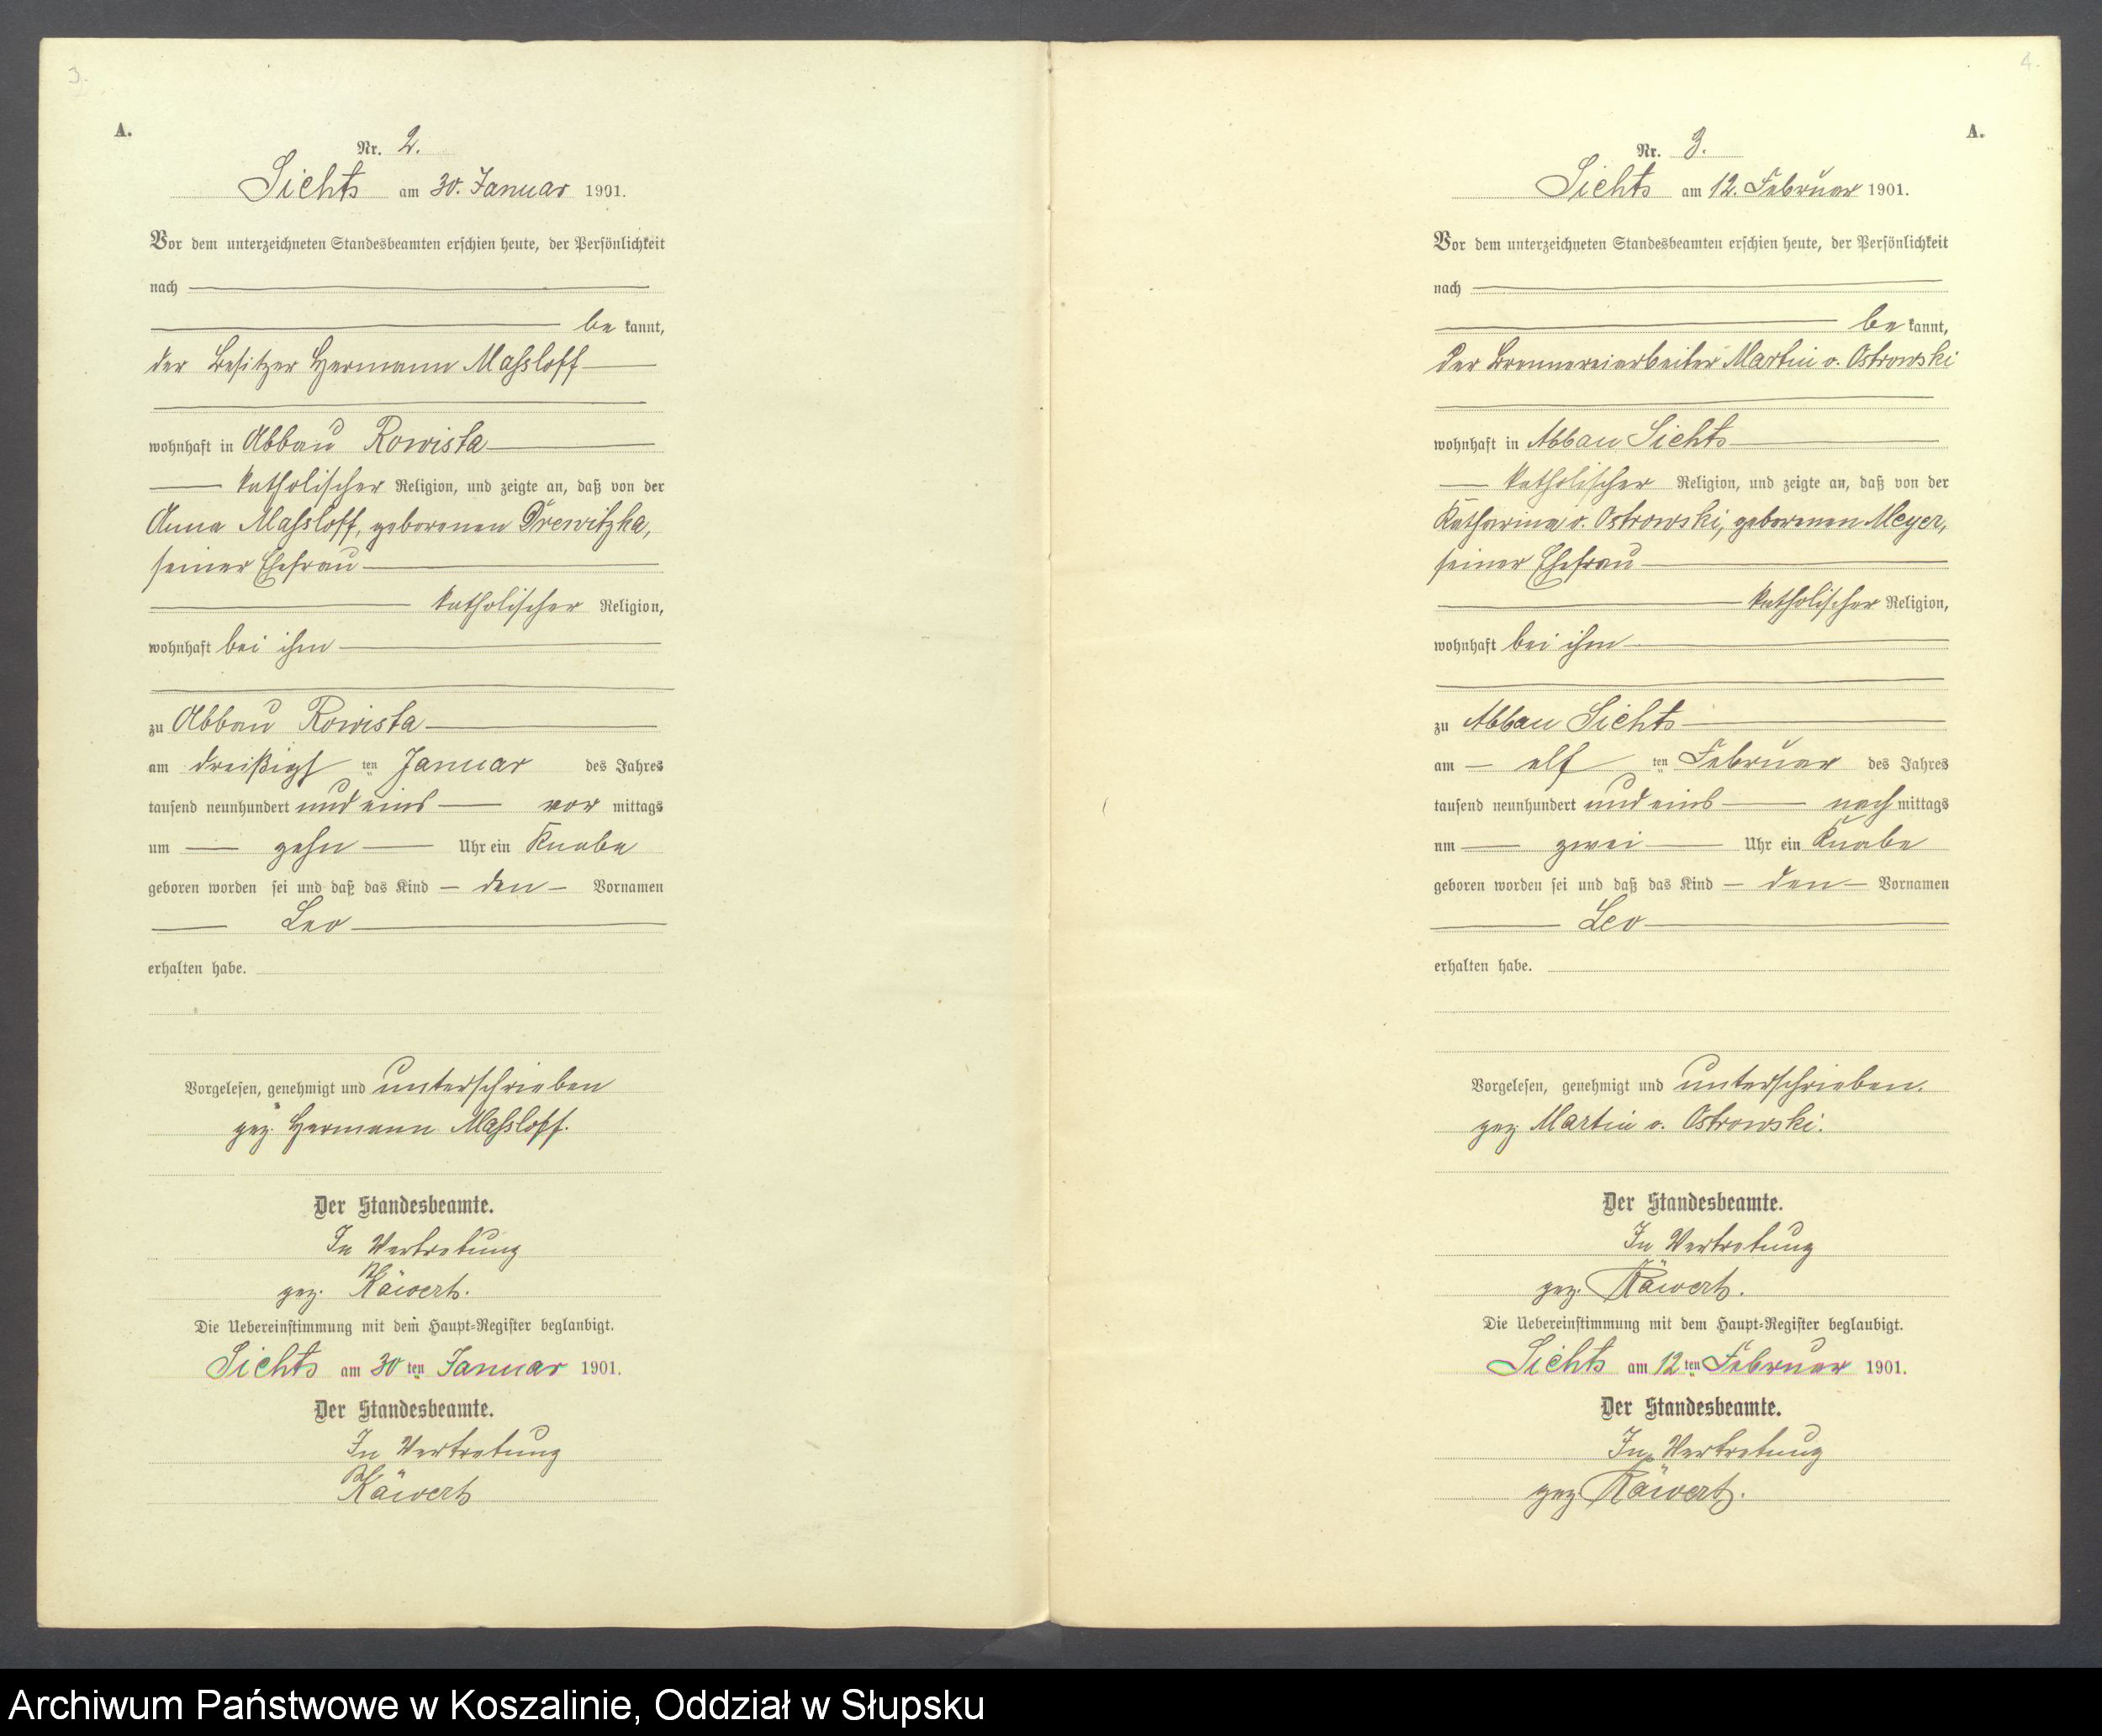 3.
A.
Nr. 2.
Sichts am 30. Januar 1901.
Vor dem unterzeichneten Standesbeamten erschien heute, der Persönlichkeit
nach
be kannt,
der Besitzer Hermann Maßloff
wohnhaft in Abbau Rowista
katholischer Religion, und zeigte an, daß von der
Anna Maßloff, geborenen Drewitzka,
seiner Ehefrau
katholischer Religion,
wohnhaft bei ihm
zu Abbau Rowista
am dreißigst ten Januar des Jahres
tausend neunhundert und eins vor mittags
um zehn Uhr ein Knabe
geboren worden sei und daß das Kind den Vornamen
Leo
erhalten habe.
Vorgelesen, genehmigt und unterschrieben
gez. Hermann Maßloff.
Der Standesbeamte.
In Vertretung
gez. Käwert.
Die Uebereinstimmung mit dem Haupt-Register beglaubigt.
Sichts am 30 ten Januar 1901.
Der Standesbeamte.
In Vertretung
Käwert
4.
A.
Nr. 3.
Sichts am 12. Februar 1901.
Vor dem unterzeichneten Standesbeamten erschien heute, der Persönlichkeit
nach
be kannt,
der Brennereiarbeiter Martin v. Ostrowski
wohnhaft in Abbau Sichts
katholischer Religion, und zeigte an, daß von der
Katharina v. Ostrowski, geborenen Meyer,
seiner Ehefrau
katholischer Religion,
wohnhaft bei ihm
zu Abbau Sichts
am elf ten Februar des Jahres
tausend neunhundert und eins nach mittags
um zwei Uhr ein Knabe
geboren worden sei und daß das Kind den Vornamen
Leo
erhalten habe.
Vorgelesen, genehmigt und unterschrieben.
gez Martin v. Ostrowski.
Der Standesbeamte.
In Vertretung
gez. Käwert.
Die Uebereinstimmung mit dem Haupt-Register beglaubigt.
Sichts am 12 ten Februar 1901.
Der Standesbeamte.
In Vertretung
gez Käwert.
Archiwum Państwowe w Koszalinie, Oddział w Słupsku